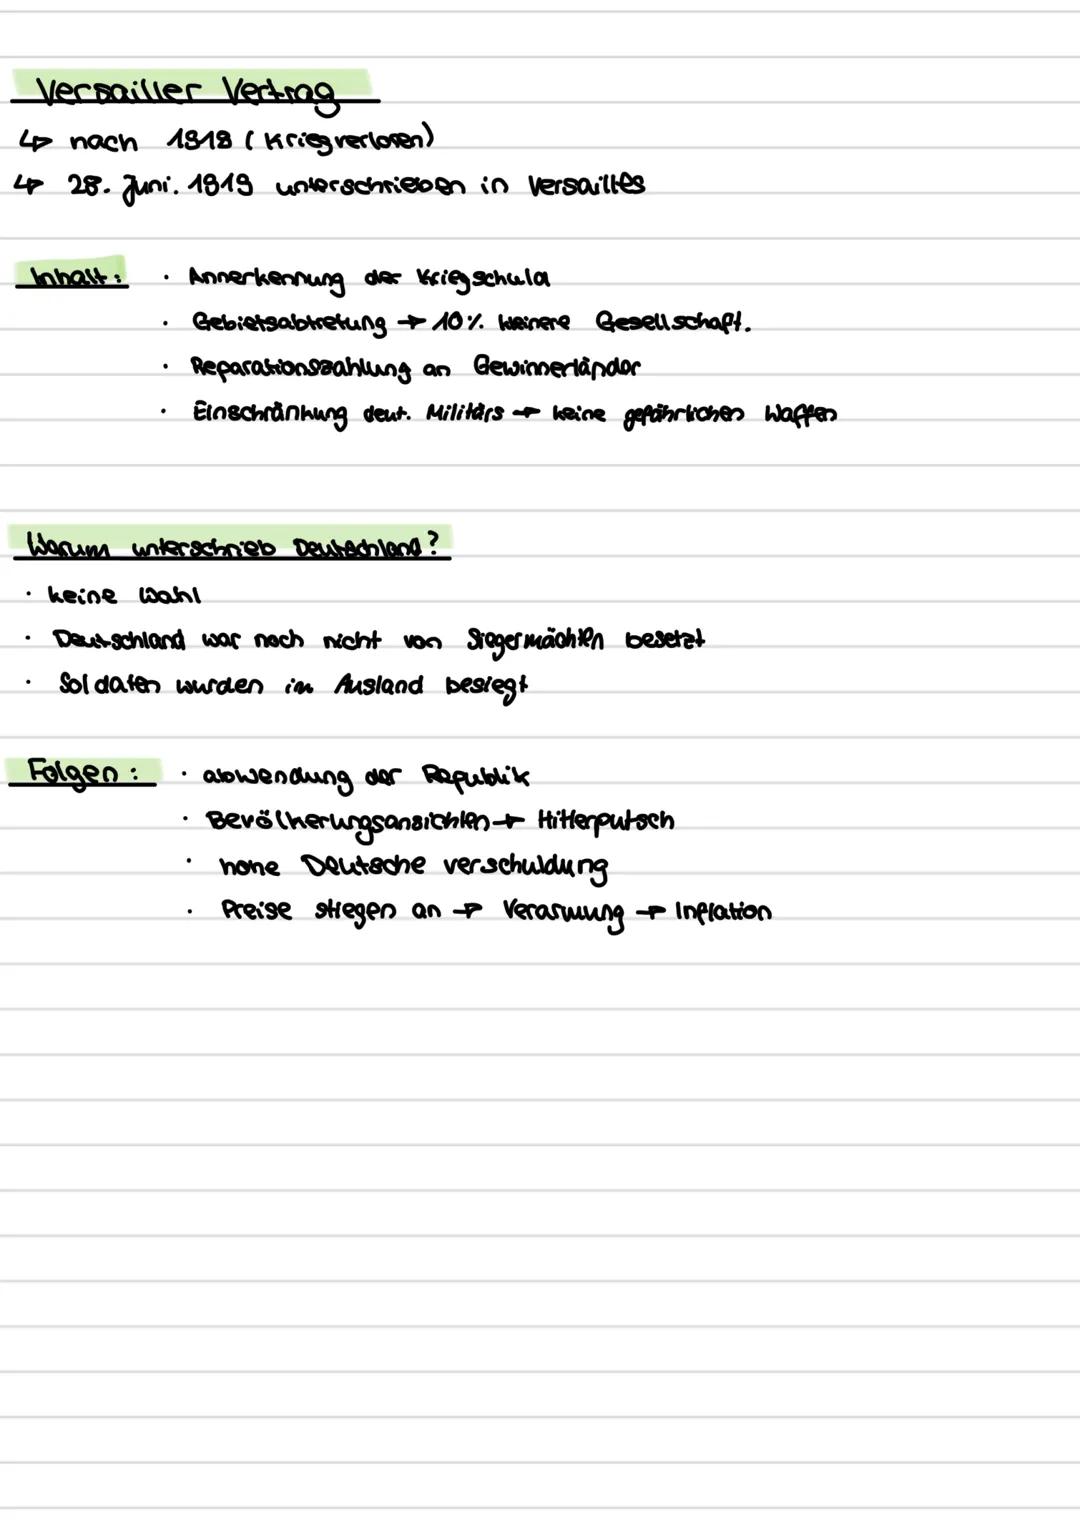 Versailler Vertrag
↳ nach 1918 (Krieg verloren)
↳ 28. Juni. 1919 unterschrieben in Versailles
Inhalt: · Annerkennung der Kriegschuld
· Gebietsabtretung → 10% kleinere Gesellschaft.
· Reparationszahlung an Gewinnerländer
· Einschränkung deut. Militärs → keine gefährlichen Waffen
Warum unterschrieb Deutschland?
· keine Wahl
· Deutschland war noch nicht von Siegermächten besetzt
· Soldaten wurden im Ausland besiegt
Folgen: · abwendung der Republik
· Bevölkerungsansichten → Hitlerputsch
· hohe Deutsche verschuldung
· Preise stiegen an → Verarmung → Inflation